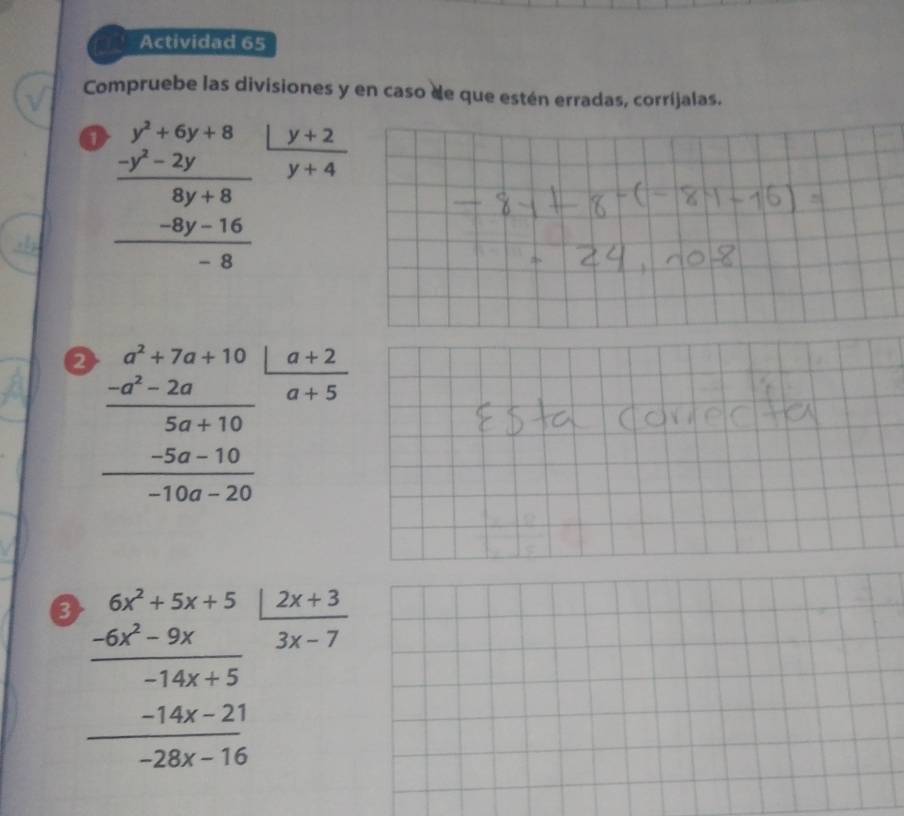 Actividad 65
Compruebe las divisiones y en caso de que estén erradas, corríjalas.
1 y² + 6y + 8 | y + 2
-y² - 2y y + 4
8y + 8
-8y - 16
- 8
-8y+8-(-8y-16)=
= 24, no 8
2 a² + 7a + 10 | a + 2
-a² - 2a a + 5
5a + 10
-5a - 10
-10a - 20
Esta correcta
3 6x² + 5x + 5 | 2x + 3
-6x² - 9x 3x - 7
-14x + 5
-14x - 21
-28x - 16